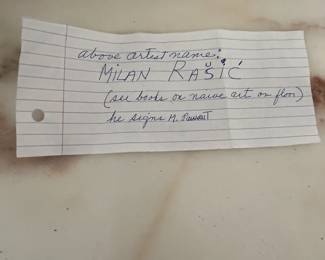 above artist name:
MILAN RAŠIĆ
(see books on naive art on floor)
he signs M.